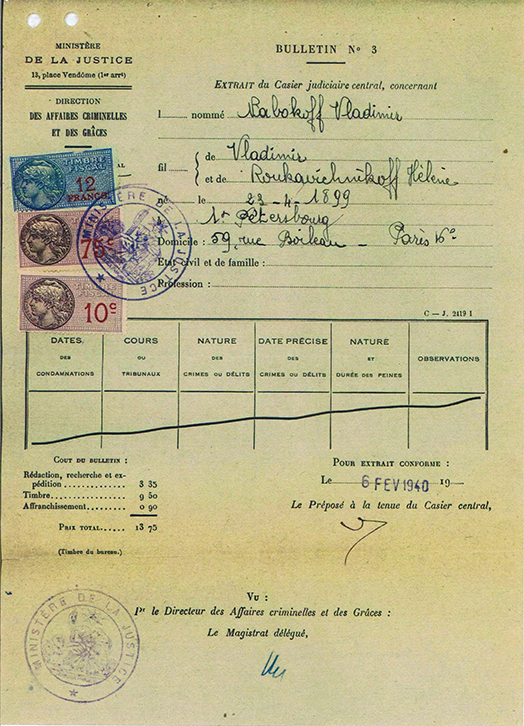 MINISTÈRE
DE LA JUSTICE
13, place Vendôme (1er arrt)
DIRECTION
DES AFFAIRES CRIMINELLES
ET DES GRÂCES
BULLETIN No 3
EXTRAIT du Casier judiciaire central, concernant
l nommé Nabokoff Vladimir
fil de Vladimir
et de Roukavichnikoff Hélène
né le 23-4-1899
à St Pétersbourg
Domicile : 59, rue Boileau - Paris 16e
Etat civil et de famille :
Profession :
TIMBRE
FISCAL
12
FRANCS
75c
TIMBRE
FISCAL
10c
MINISTÈRE DE LA JUSTICE
C — J. 2419 1
DATES
DES
CONDAMNATIONS
COURS
OU
TRIBUNAUX
NATURE
DES
CRIMES OU DÉLITS
DATE PRÉCISE
DES
CRIMES OU DÉLITS
NATURE
ET
DURÉE DES PEINES
OBSERVATIONS
COUT DU BULLETIN :
Rédaction, recherche et ex-
pédition 3 35
Timbre 9 50
Affranchissement 0 90
PRIX TOTAL 13 75
(Timbre du bureau.)
POUR EXTRAIT CONFORME :
Le 6 FEV 1940 19
Le Préposé à la tenue du Casier central,
VU :
Pr le Directeur des Affaires criminelles et des Grâces :
Le Magistrat délégué,
MINISTÈRE DE LA JUSTICE